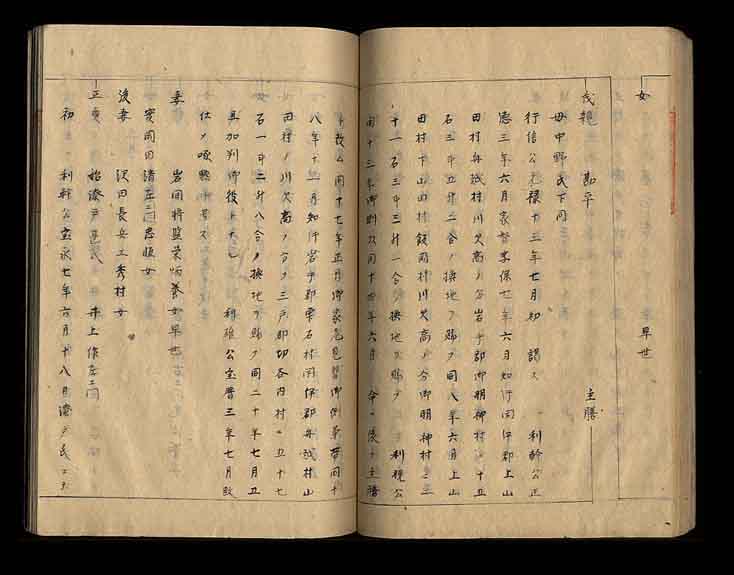 女 早世
茂親 勘平 主膳
母中野氏下同
行信公元禄十三年七月初 謁ス 利幹公正
徳三年六月家督享保七年六月知行閉伊郡上山
田村舟越村川欠高ノ分岩手郡御明神村ニ十五
石三斗五升二合ノ換地ヲ賜フ同八年六月上山
田村下山田村飯岡村川欠高ノ分御明神村ニ三
十一石三斗三升一合ノ換地ヲ賜フ 利視公
同十三年御側次同十四年六月 命ニ依テ主膳
ト改ム同十七年正月御家老見習御側兼帯同十
八年十二月知行岩手郡雫石村閉伊郡舟越村山
田村ノ川欠高ノ分三戸郡切谷内村ニ五十七
石一斗二升八合ノ換地ヲ賜フ同二十年七月五
加判御役トナル 利雄公宝暦三年七月致
仕ノ
妻 岩間将監 養女早世
実同田清左エ門忠 女
後妻 沢田長兵エ秀村女
正 始漆戸 井上作左エ門
初 利幹公宝永七年六月十八日漆戸氏